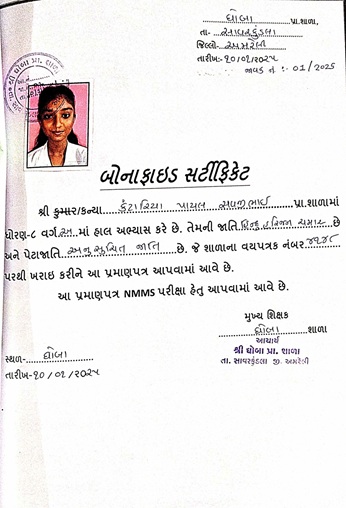 ધોબા પ્રા.શાળા,
તા- સાવરકુંડલા
જિલ્લો- અમરેલી
તારીખ:- ૧૦/૦૧/૨૦૨૫
જાવક નં :- 01/2025
બોનાફાઇડ સર્ટીફિકેટ
શ્રી કુમાર/કન્યા પાયલ પ્રા.શાળામાં
ધોરણ-૮ વર્ગ માં હાલ અભ્યાસ કરે છે. તેમની જાતિ હિન્દુ હરિજન ચમાર છે
અને પેટાજાતિ અનુસુચિત જાતિ છે. જે શાળાના વયપત્રક નંબર
પરથી ખરાઇ કરીને આ પ્રમાણપત્ર આપવામાં આવે છે.
આ પ્રમાણપત્ર NMMS પરીક્ષા હેતુ આપવામાં આવે છે.
મુખ્ય શિક્ષક
ધોબા શાળા
આચાર્ય
શ્રી ધોબા પ્રા. શાળા
તા. સાવરકુંડલા જી. અમરેલી
સ્થળ- ધોબા
તારીખ-૧૦/૦૧/૨૦૨૫